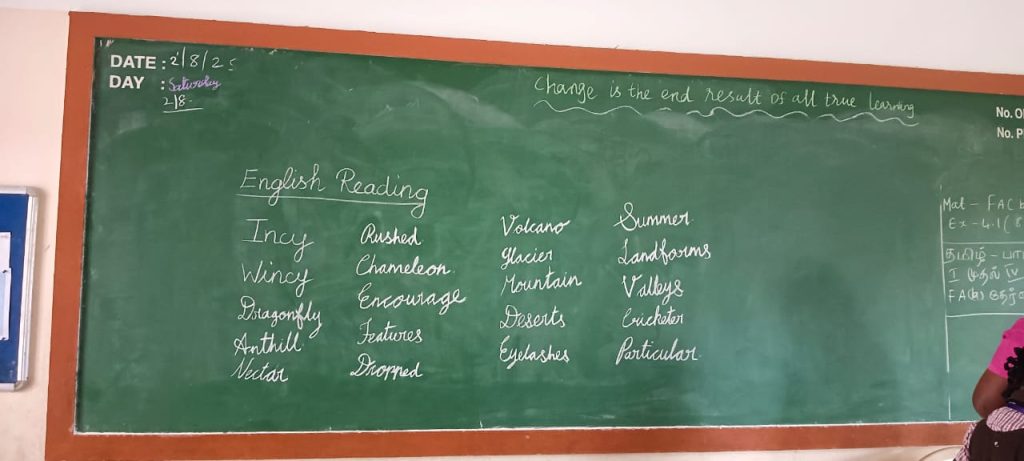 DATE : 2/8/25
DAY : Saturday
2/8
Change is the end result of all true learning
English Reading
Incy
Wincy
Dragonfly
Anthill
Nectar
Rushed
Chameleon
Encourage
Features
Dropped
Volcano
Glacier
Mountain
Deserts
Eyelashes
Summer
Landforms
Valleys
Cricketer
Particular
No.
No.
Mat - FA(b
Ex - 4.1(8
தமிழ் -
I முதல் IV
FA(a)